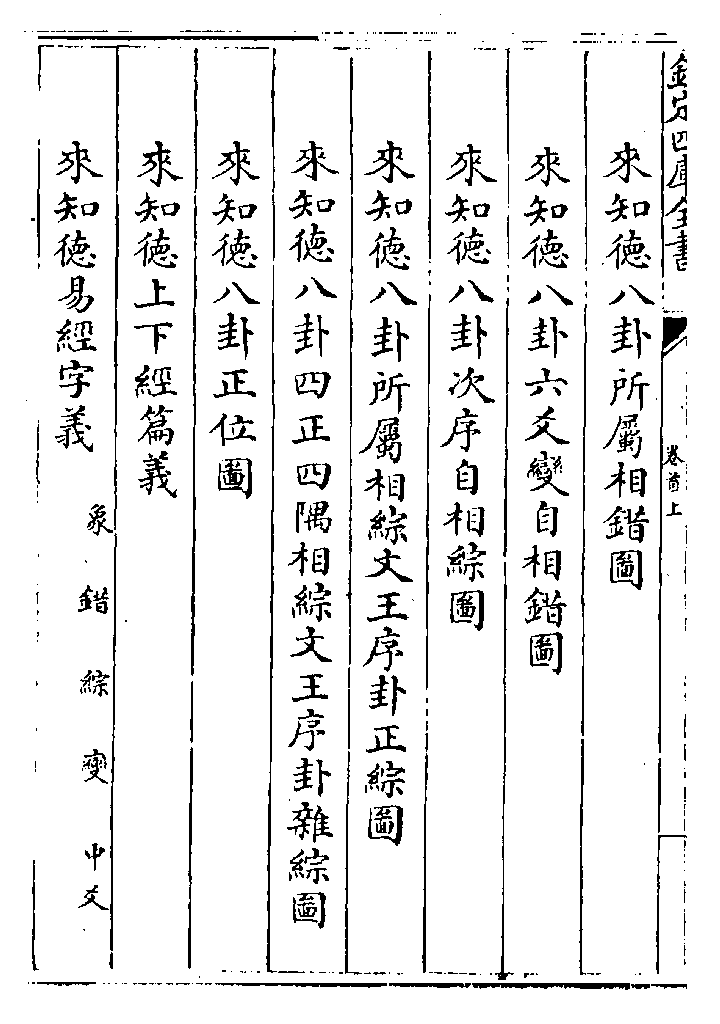 欽定四庫全書
卷首上
來知德八卦所屬相錯圖
來知德八卦六爻變自相錯圖
來知德八卦次序自相綜圖
來知德八卦所屬相綜文王序卦正綜圖
來知德八卦四正四隅相綜文王序卦雜綜圖
來知德八卦正位圖
來知德上下經篇義
來知德易經字義
象 錯 綜 變 中爻